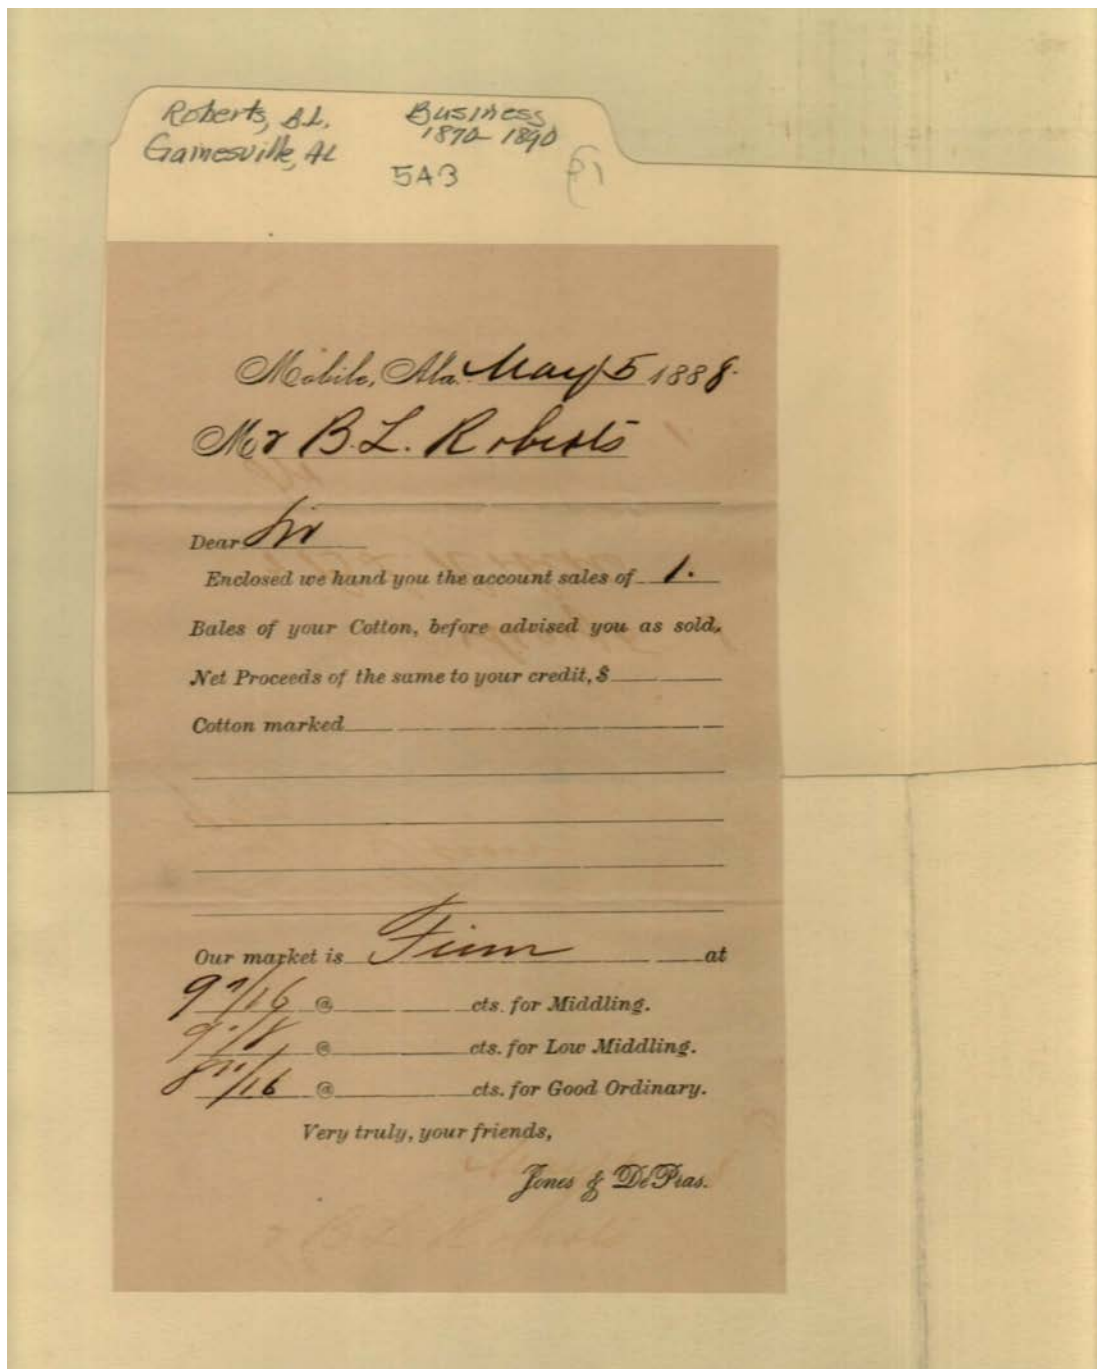 Roberts, B.L. Business
1870-1890
Gainesville, AL
5A3
Mobile, Ala. May 5 1888.
Mr B. L. Roberts
Dear Sir
Enclosed we hand you the account sales of 1.
Bales of your Cotton, before advised you as sold,
Net Proceeds of the same to your credit, $
Cotton marked
Our market is Firm at
9 7/16 @ cts. for Middling.
@ cts. for Low Middling.
8 11/16 @ cts. for Good Ordinary.
Very truly, your friends,
Jones & DePras.